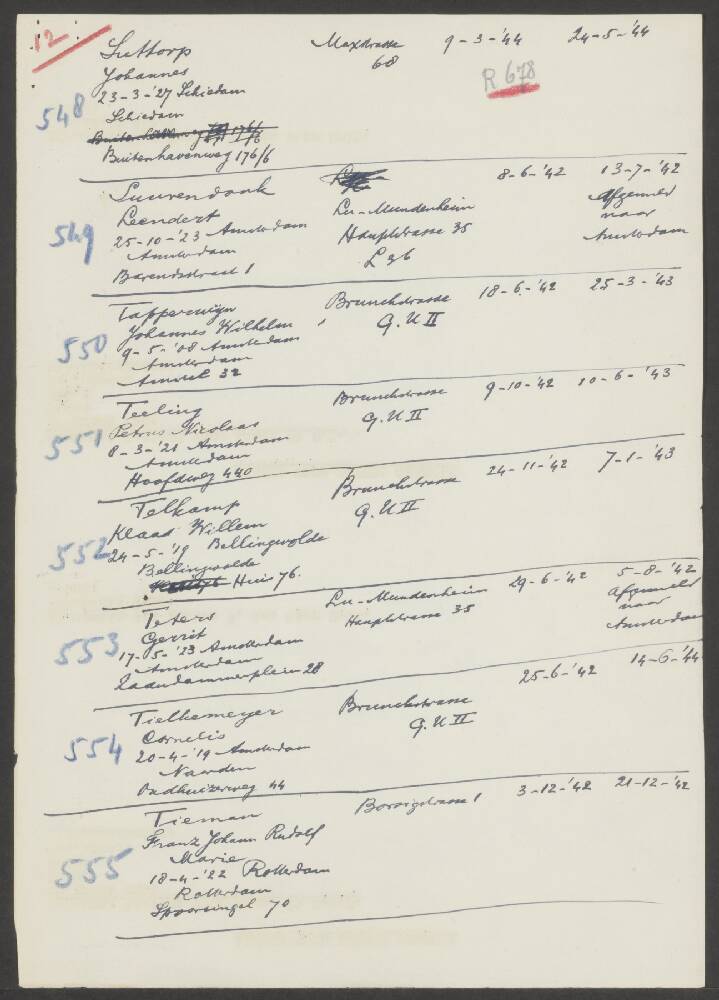 12
Suttorp Maxstrasse 9-3-'44 24-5-'44
Johannes 68
R 678
548 23-3-'27 Schiedam
Schiedam
Buitenhavenweg 176/6
Suurendonk 8-6-'42 13-7-'42
549 Leendert Lu-Mundenheim Afgemeld
25-10-'23 Amsterdam Hauptstrasse 35 naar
Amsterdam L 36 Amsterdam
Barendszstraat 1
Brunckstrasse 18-6-'42 25-3-'43
550 Johannes Wilhelm G.U II
9-5-'08 Amsterdam
Amsterdam
Amstel 32
Teeling Brunckstrasse 9-10-'42 10-6-'43
551 Petrus Nicolaas G.U II
8-3-'21 Amsterdam
Amsterdam
Hoofdweg 440
Telkamp Brunckstrasse 24-11-'42 7-1-'43
552 Klaas Willem G.U II
24-5-'19 Bellingwolde
Bellingwolde
Huis 76.
Teters Lu-Mundenheim 29-6-'42 5-8-'42
553 Gerrit Hauptstrasse 35 afgemeld
17-5-'23 Amsterdam naar
Amsterdam Amsterdam
Zaandammerplein 28
Tielkemeyer Brunckstrasse 25-6-'42 14-6-'44
554 Cornelis G.U II
20-4-'19 Amsterdam
Naarden
Oudhuizerweg 44
Tieman Borsigstrasse 1 3-12-'42 21-12-'42
555 Franz Johann Rudolf
Marie
18-4-'22 Rotterdam
Rotterdam
Spoorsingel 70